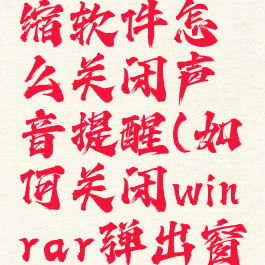 缩软件怎
么关闭声
音提醒(如
何关闭win
rar弹出窗